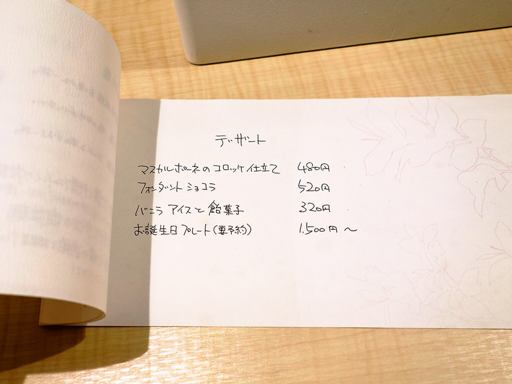 デザート
マスカルポーネのコロッケ仕立て 480円
フォンダントショコラ 520円
バニラアイスと飴菓子 320円
お誕生日プレート(要予約) 1.500円〜